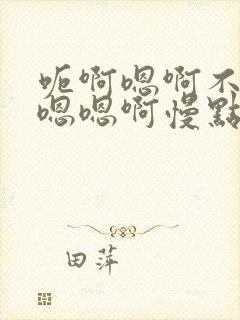 呃啊嗯啊不
嗯嗯啊慢點
田萍